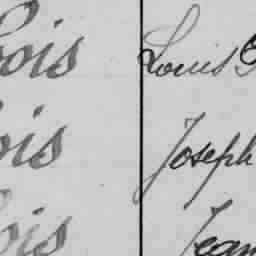 ois Louis
ois Joseph
ois Jean